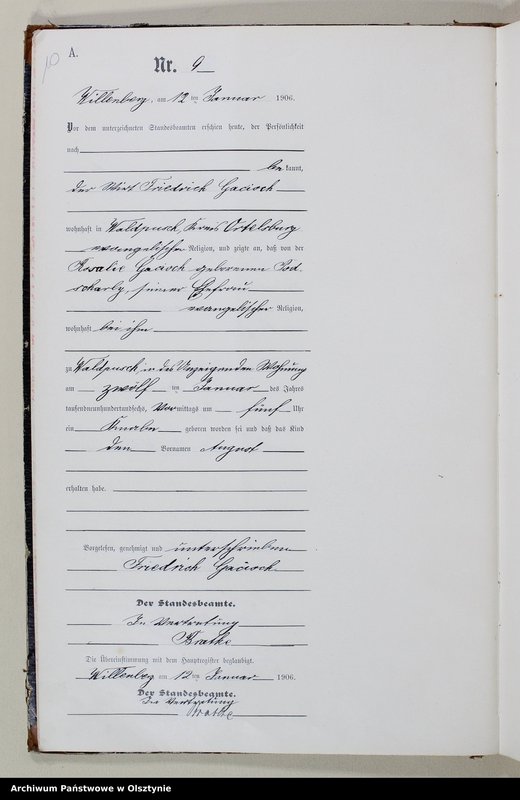 10
A.
Nr. 9
Willenberg, am 12 ten Januar 1906.
Vor dem unterzeichneten Standesbeamten erschien heute, der Persönlichkeit
nach
be kannt,
der Wirt Friedrich Gacioch
wohnhaft in Waldpusch, Kreis Ortelsburg
evangelischer Religion, und zeigte an, daß von der
Rosalie Gacioch geborenen Pod
scharly, seiner Ehefrau
evangelischer Religion,
wohnhaft bei ihm
zu Waldpusch in des Anzeigenden Wohnung
am zwölf ten Januar des Jahres
tausendneunhundertsechs, Vormittags um fünf Uhr
ein Knabe geboren worden sei und daß das Kind
den Vornamen August
erhalten habe.
Vorgelesen, genehmigt und unterschrieben
Friedrich Gacioch
Der Standesbeamte.
In Vertretung
Bratke
Die Übereinstimmung mit dem Hauptregister beglaubigt.
Willenberg am 12 ten Januar 1906.
Der Standesbeamte.
In Vertretung
Bratke
Archiwum Państwowe w Olsztynie